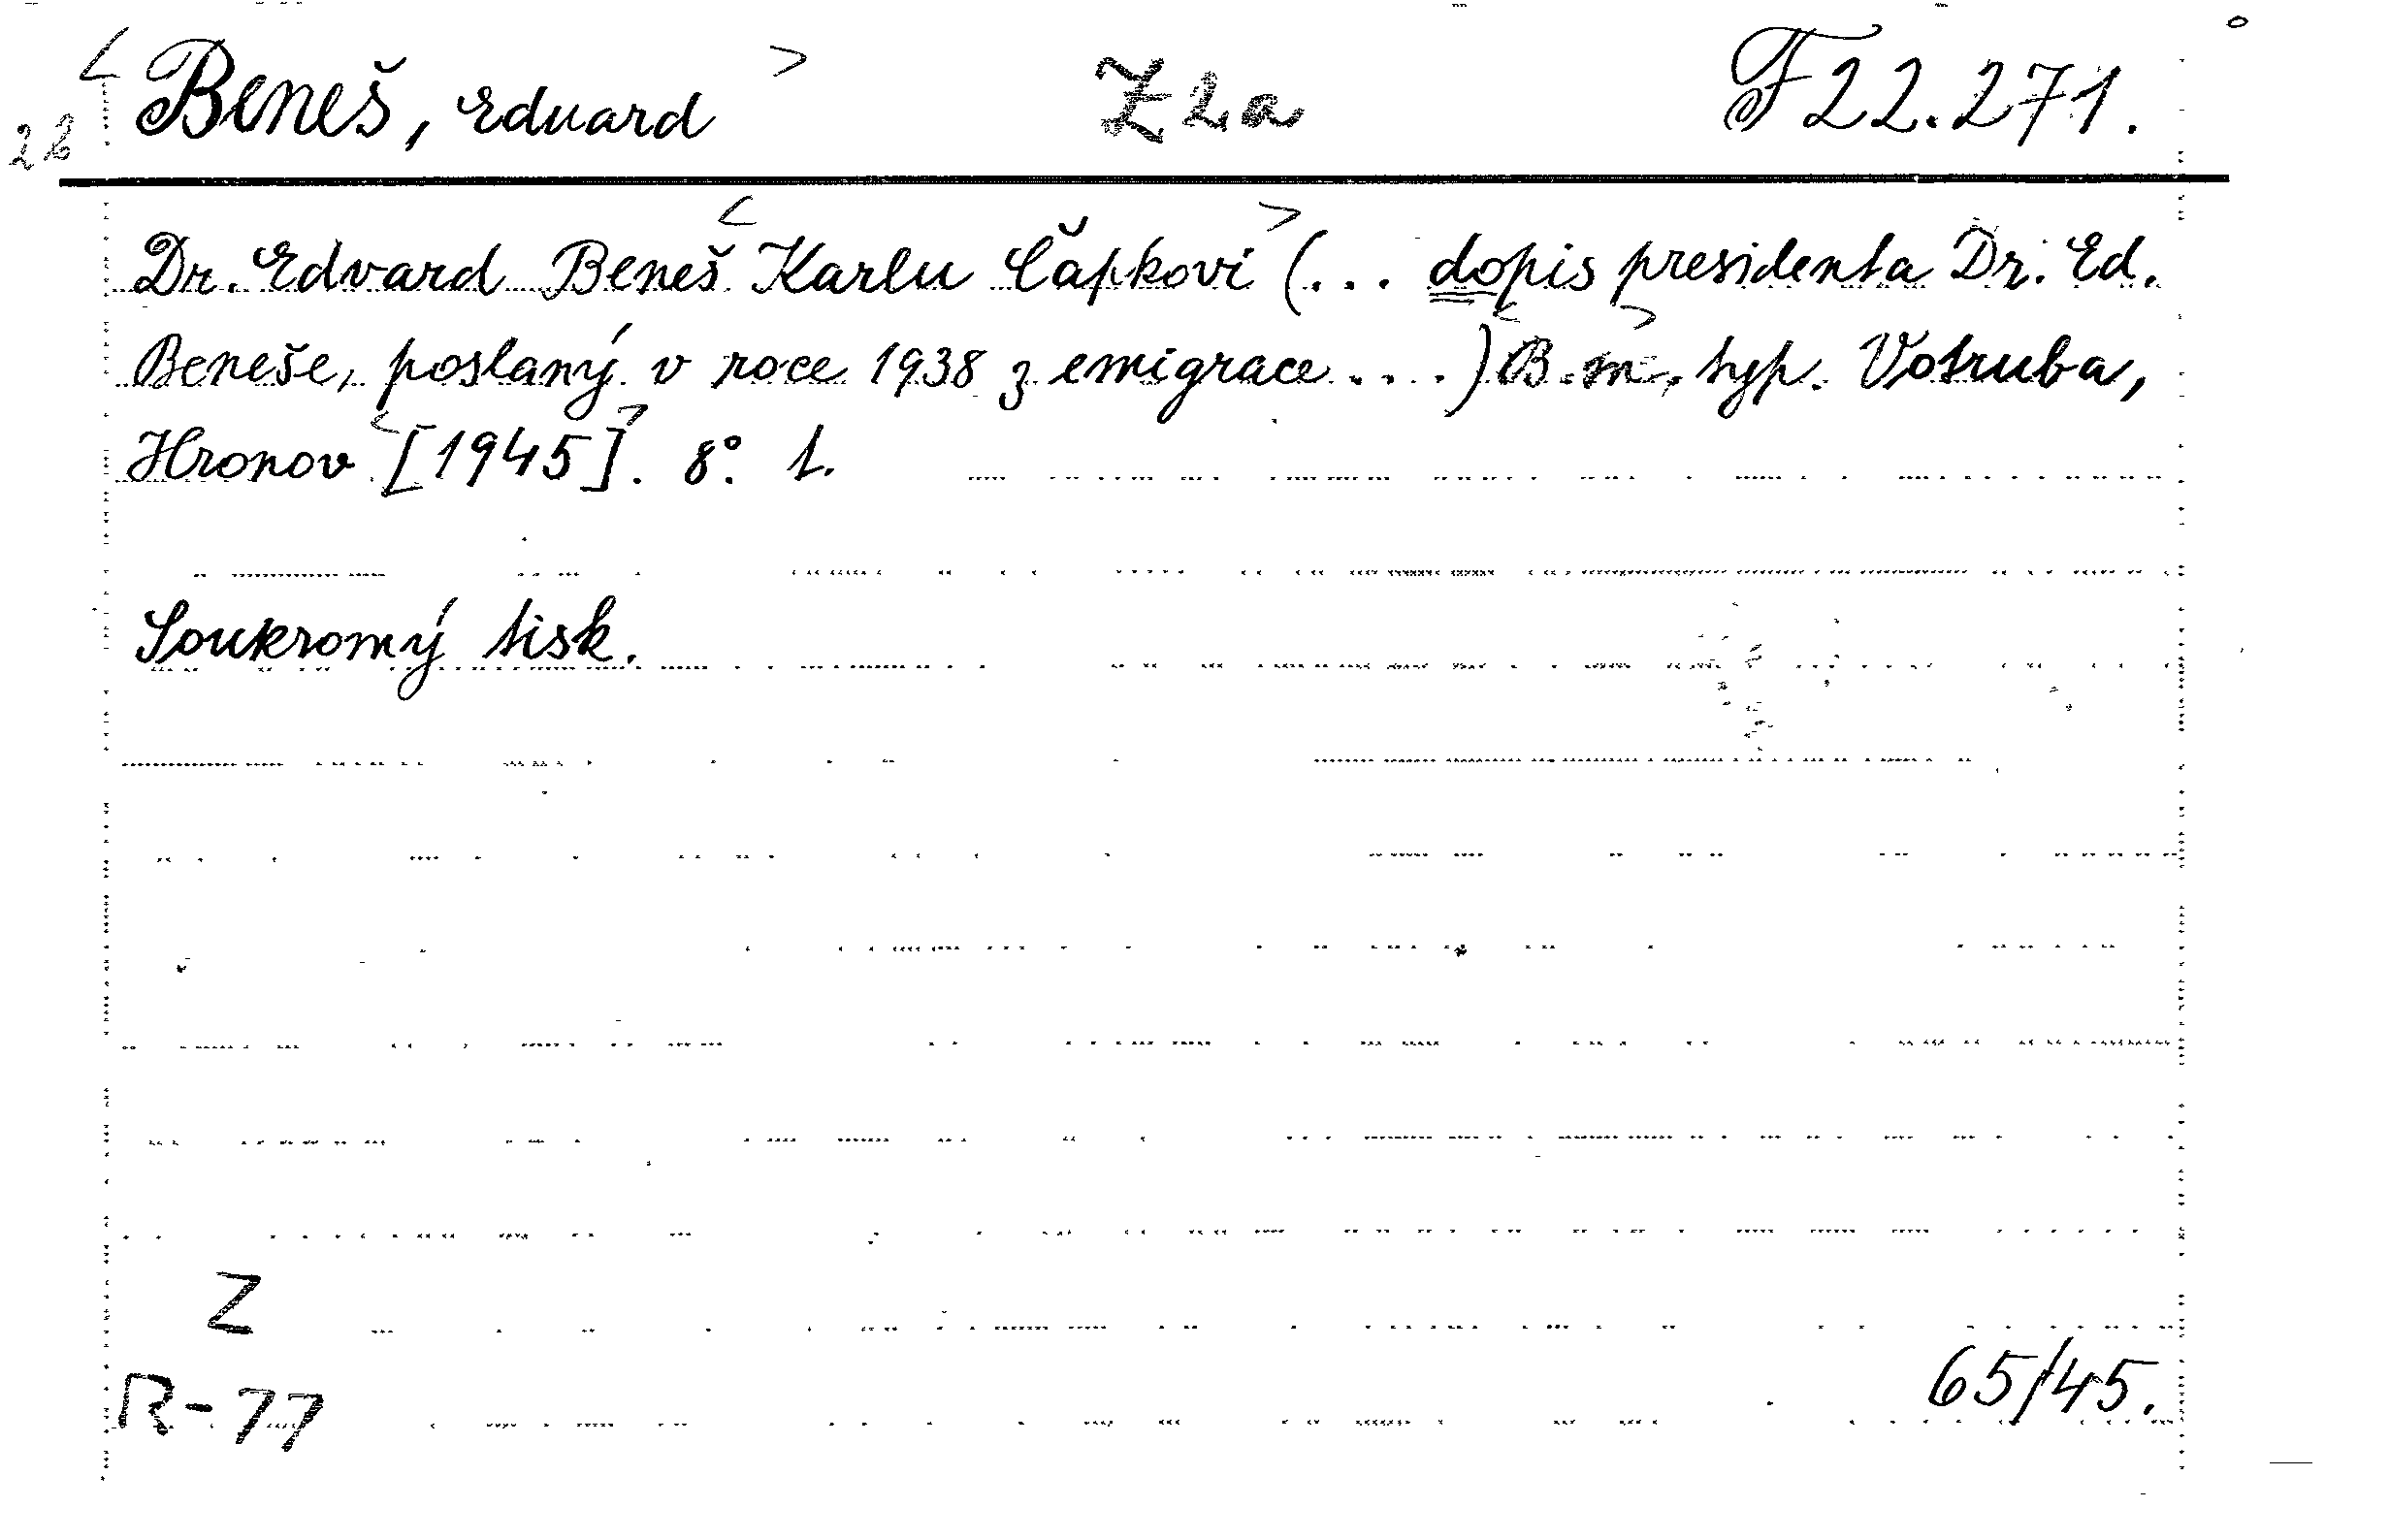 < Beneš, Eduard > Z 2a F 22.271.
22
Dr. Edvard Beneš < Karlu Čapkovi > (... dopis presidenta Dr. Ed.
Beneše, poslaný v roce 1938 z emigrace....) < B. m. >, typ. Votruba,
Hronov < [1945] >. 8°. 1.
Soukromý tisk.
Z
R-77
65/45.